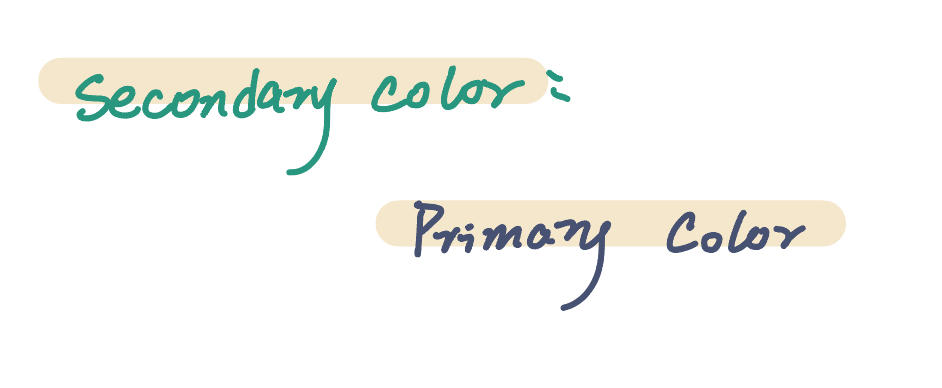 Secondary color:
Primary Color